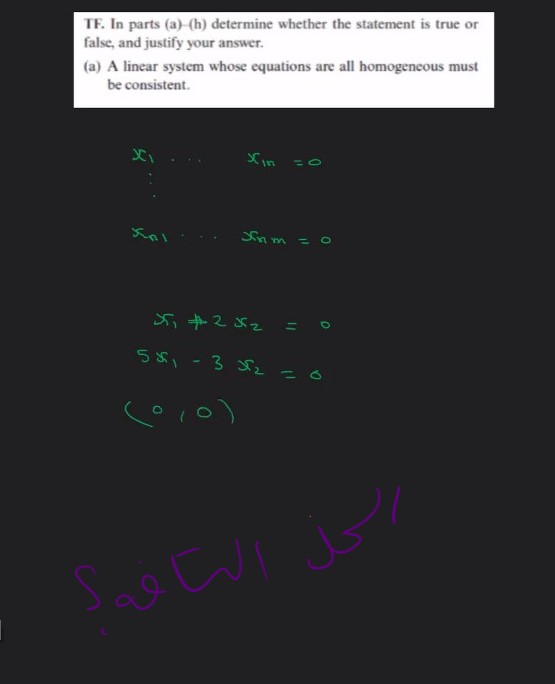 TF. In parts (a)–(h) determine whether the statement is true or
false, and justify your answer.
(a) A linear system whose equations are all homogeneous must
be consistent.
x₁ . . . x₁ₙ = 0
:
.
xₙ₁ . . . xₙₘ = 0
x₁ + 2x₂ = 0
5x₁ - 3x₂ = 0
(0, 0)
الحل